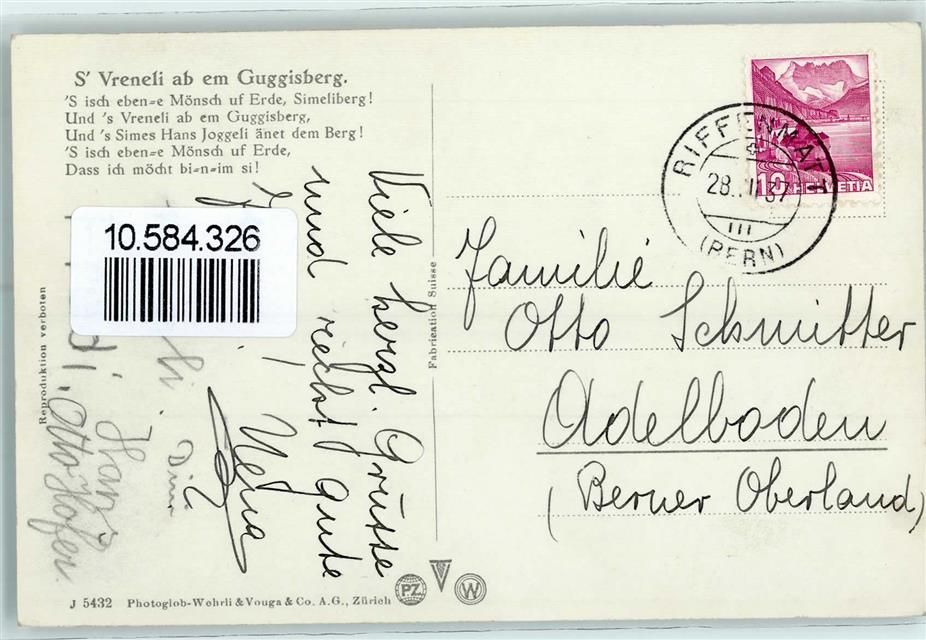 S' Vreneli ab em Guggisberg.
'S isch eben=e Mönsch uf Erde, Simeliberg!
Und 's Vreneli ab em Guggisberg,
Und 's Simes Hans Joggeli änet dem Berg!
'S isch eben=e Mönsch uf Erde,
Dass ich möcht bi=n=im si!
10.584.326
Reproduktion verboten
Viele herzl. Grüsse
und recht gute
Hans
Otto Hofer.
Fabrication Suisse
10 HELVETIA
RIFFENMATT
28. II 37
III
(BERN)
Familie
Otto Schmitter
Adelboden
(Berner Oberland)
J 5432 Photoglob-Wehrli & Vouga & Co. A.G., Zürich
PZ
V
W